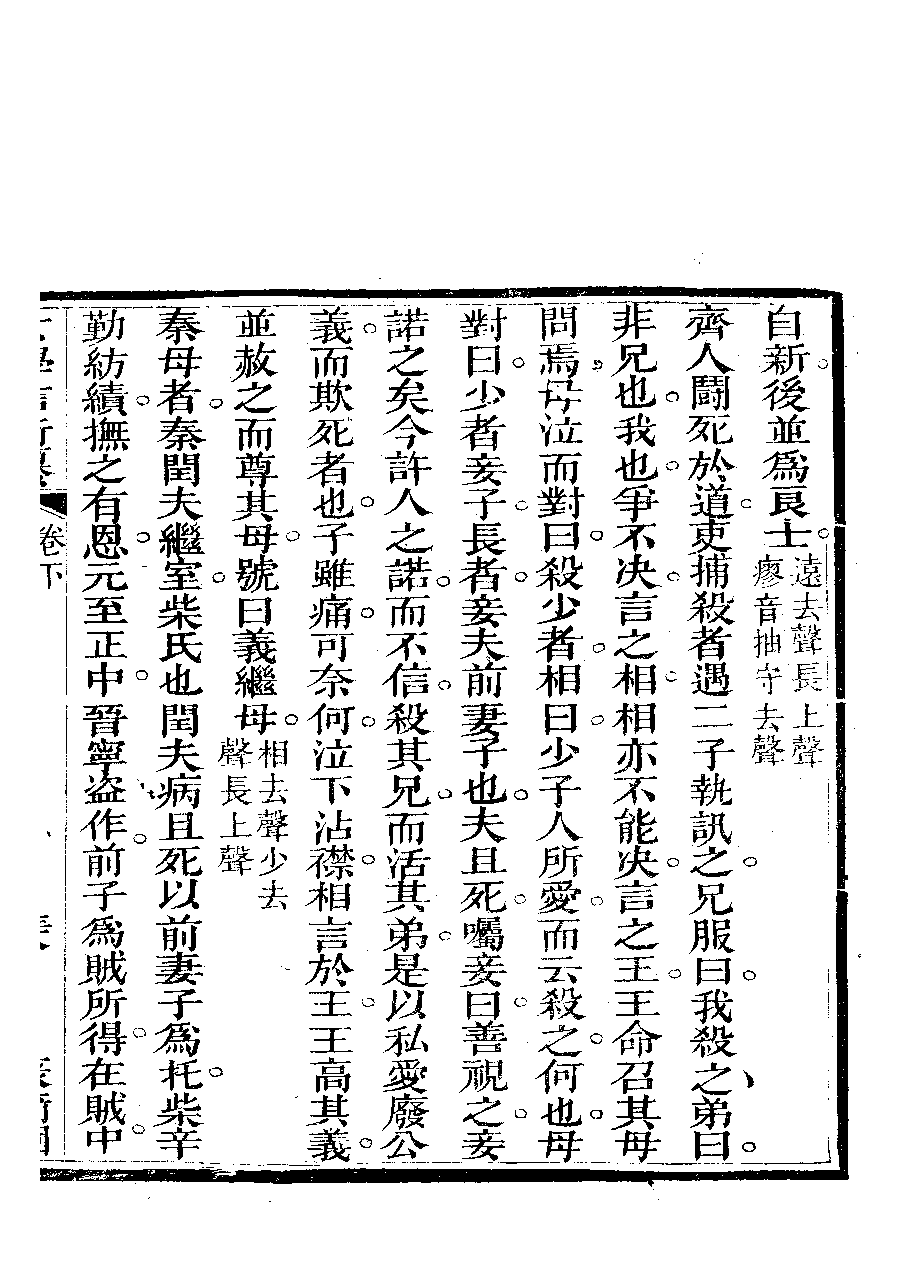 自新後並為良士遠去聲長上聲
瘳音抽守去聲
齊人鬪死於道吏捕殺者遇二子執訊之兄服曰我殺之弟曰
非兄也我也爭不決言之相相亦不能決言之王王命召其母
問焉母泣而對曰殺少者相曰少子人所愛而云殺之何也母
對曰少者妾子長者妾夫前妻子也夫且死囑妾曰善視之妾
諾之矣今許人之諾而不信殺其兄而活其弟是以私愛廢公
義而欺死者也子雖痛可奈何泣下沾襟相言於王王高其義
並赦之而尊其母號曰義繼母相去聲少去
聲長上聲
秦母者秦閏夫繼室柴氏也閏夫病且死以前妻子為托柴辛
勤紡績撫之有恩元至正中晉寧盜作前子為賊所得在賊中
卷下